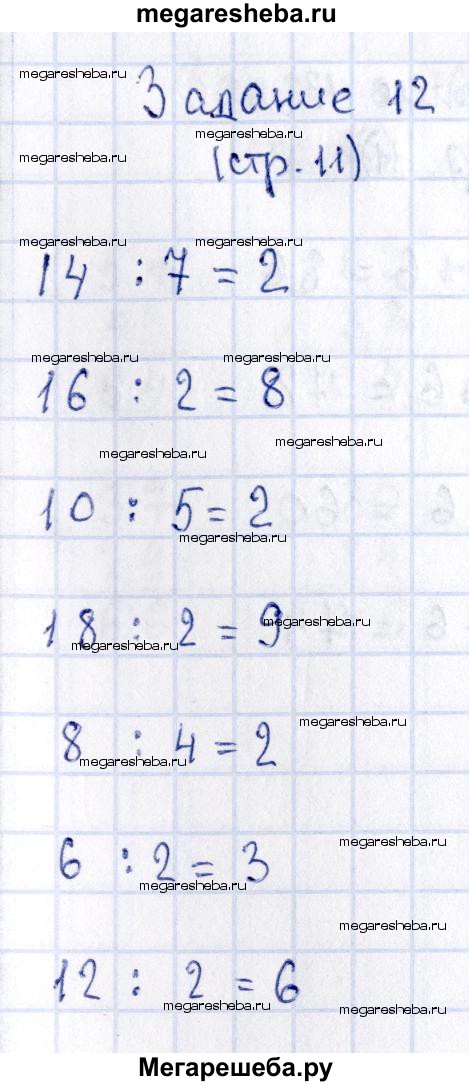 megaresheba.ru
megaresheba.ru
Задание 12
megaresheba.ru
megaresheba.ru
(стр. 11)
megaresheba.ru megaresheba.ru
14 : 7 = 2
megaresheba.ru megaresheba.ru
16 : 2 = 8
megaresheba.ru
megaresheba.ru
10 : 5 = 2
megaresheba.ru
megaresheba.ru
18 : 2 = 9
megaresheba.ru
megaresheba.ru
8 : 4 = 2
megaresheba.ru
megaresheba.ru
6 : 2 = 3
megaresheba.ru
megaresheba.ru
12 : 2 = 6
megaresheba.ru
megaresheba.ru
Мегарешеба.ру